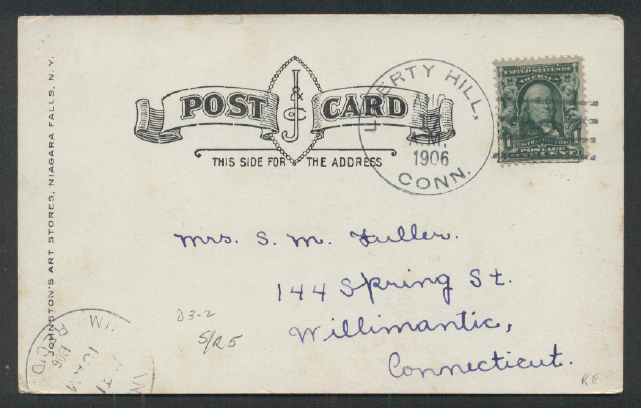 JOHNSTON'S ART STORES, NIAGARA FALLS, N.Y.
POST CARD
J & Co
THIS SIDE FOR THE ADDRESS
LIBERTY HILL,
AUG
A.M.
1906
CONN.
UNITED STATES OF
AMERICA
Mrs. S. M. Fuller.
144 Spring St.
Willimantic,
Connecticut.
D3-2
S/R5
1906
10 AM
REC'D.
RE